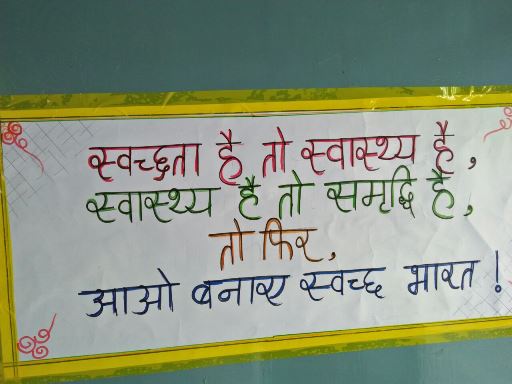 स्वच्छता है तो स्वास्थ्य है,
स्वास्थ्य है तो समृद्धि है,
तो फिर,
आओ बनाए स्वच्छ भारत !